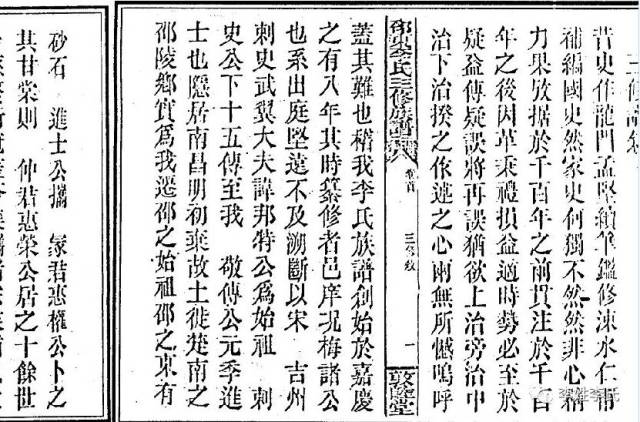 昔史作龍門孟堅續筆鑑修涑水仁甫
補編國史然家史何獨不然然非心精
力果攷據於千百年之前貫注於千百
年之後因革秉禮損益適時勢必至於
疑益傳疑誤將再誤猶欲上治旁治中
治下治揆之依述之心兩無所憾嗚呼
李氏三修族譜
卷首
三修敘
一
敦睦堂
蓋其難也稽我李氏族譜創始於嘉慶
之有八年其時纂修者邑庠現梅諸公
也系出庭堅遠不及溯斷以宋 吉州
刺史武翼大夫諱邦特公爲始祖 刺
史公下十五傳至我 敬傳公元季進
士也隱居南昌明初棄故土徙楚南之
邵陵鄉實爲我遷邵之始祖邵之東有
砂石 進士公攜 冢君惠權公卜之
其甘棠則 仲君惠榮公居之十餘世